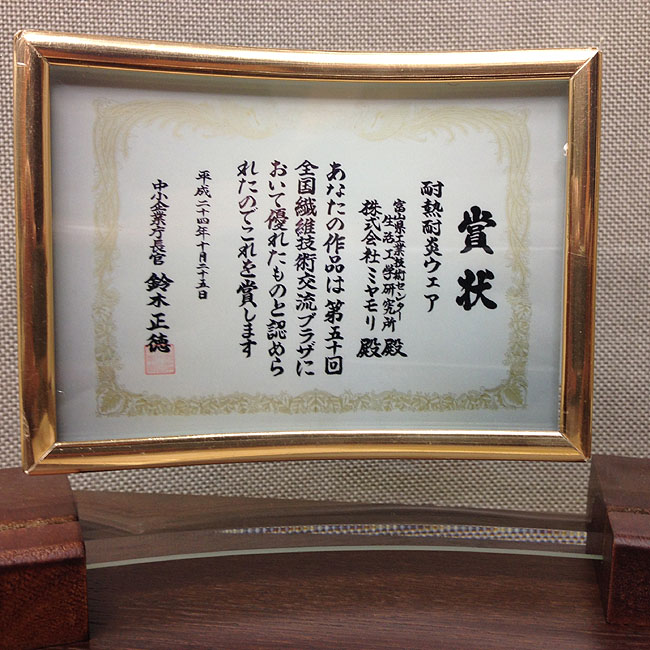 賞状
耐熱耐炎ウェア
富山県工業技術センター
生活工学研究所 殿
株式会社ミヤモリ 殿
あなたの作品は第五十回
全国繊維技術交流プラザに
おいて優れたものと認めら
れたのでこれを賞します
平成二十四年十月二十五日
中小企業庁長官 鈴木正徳